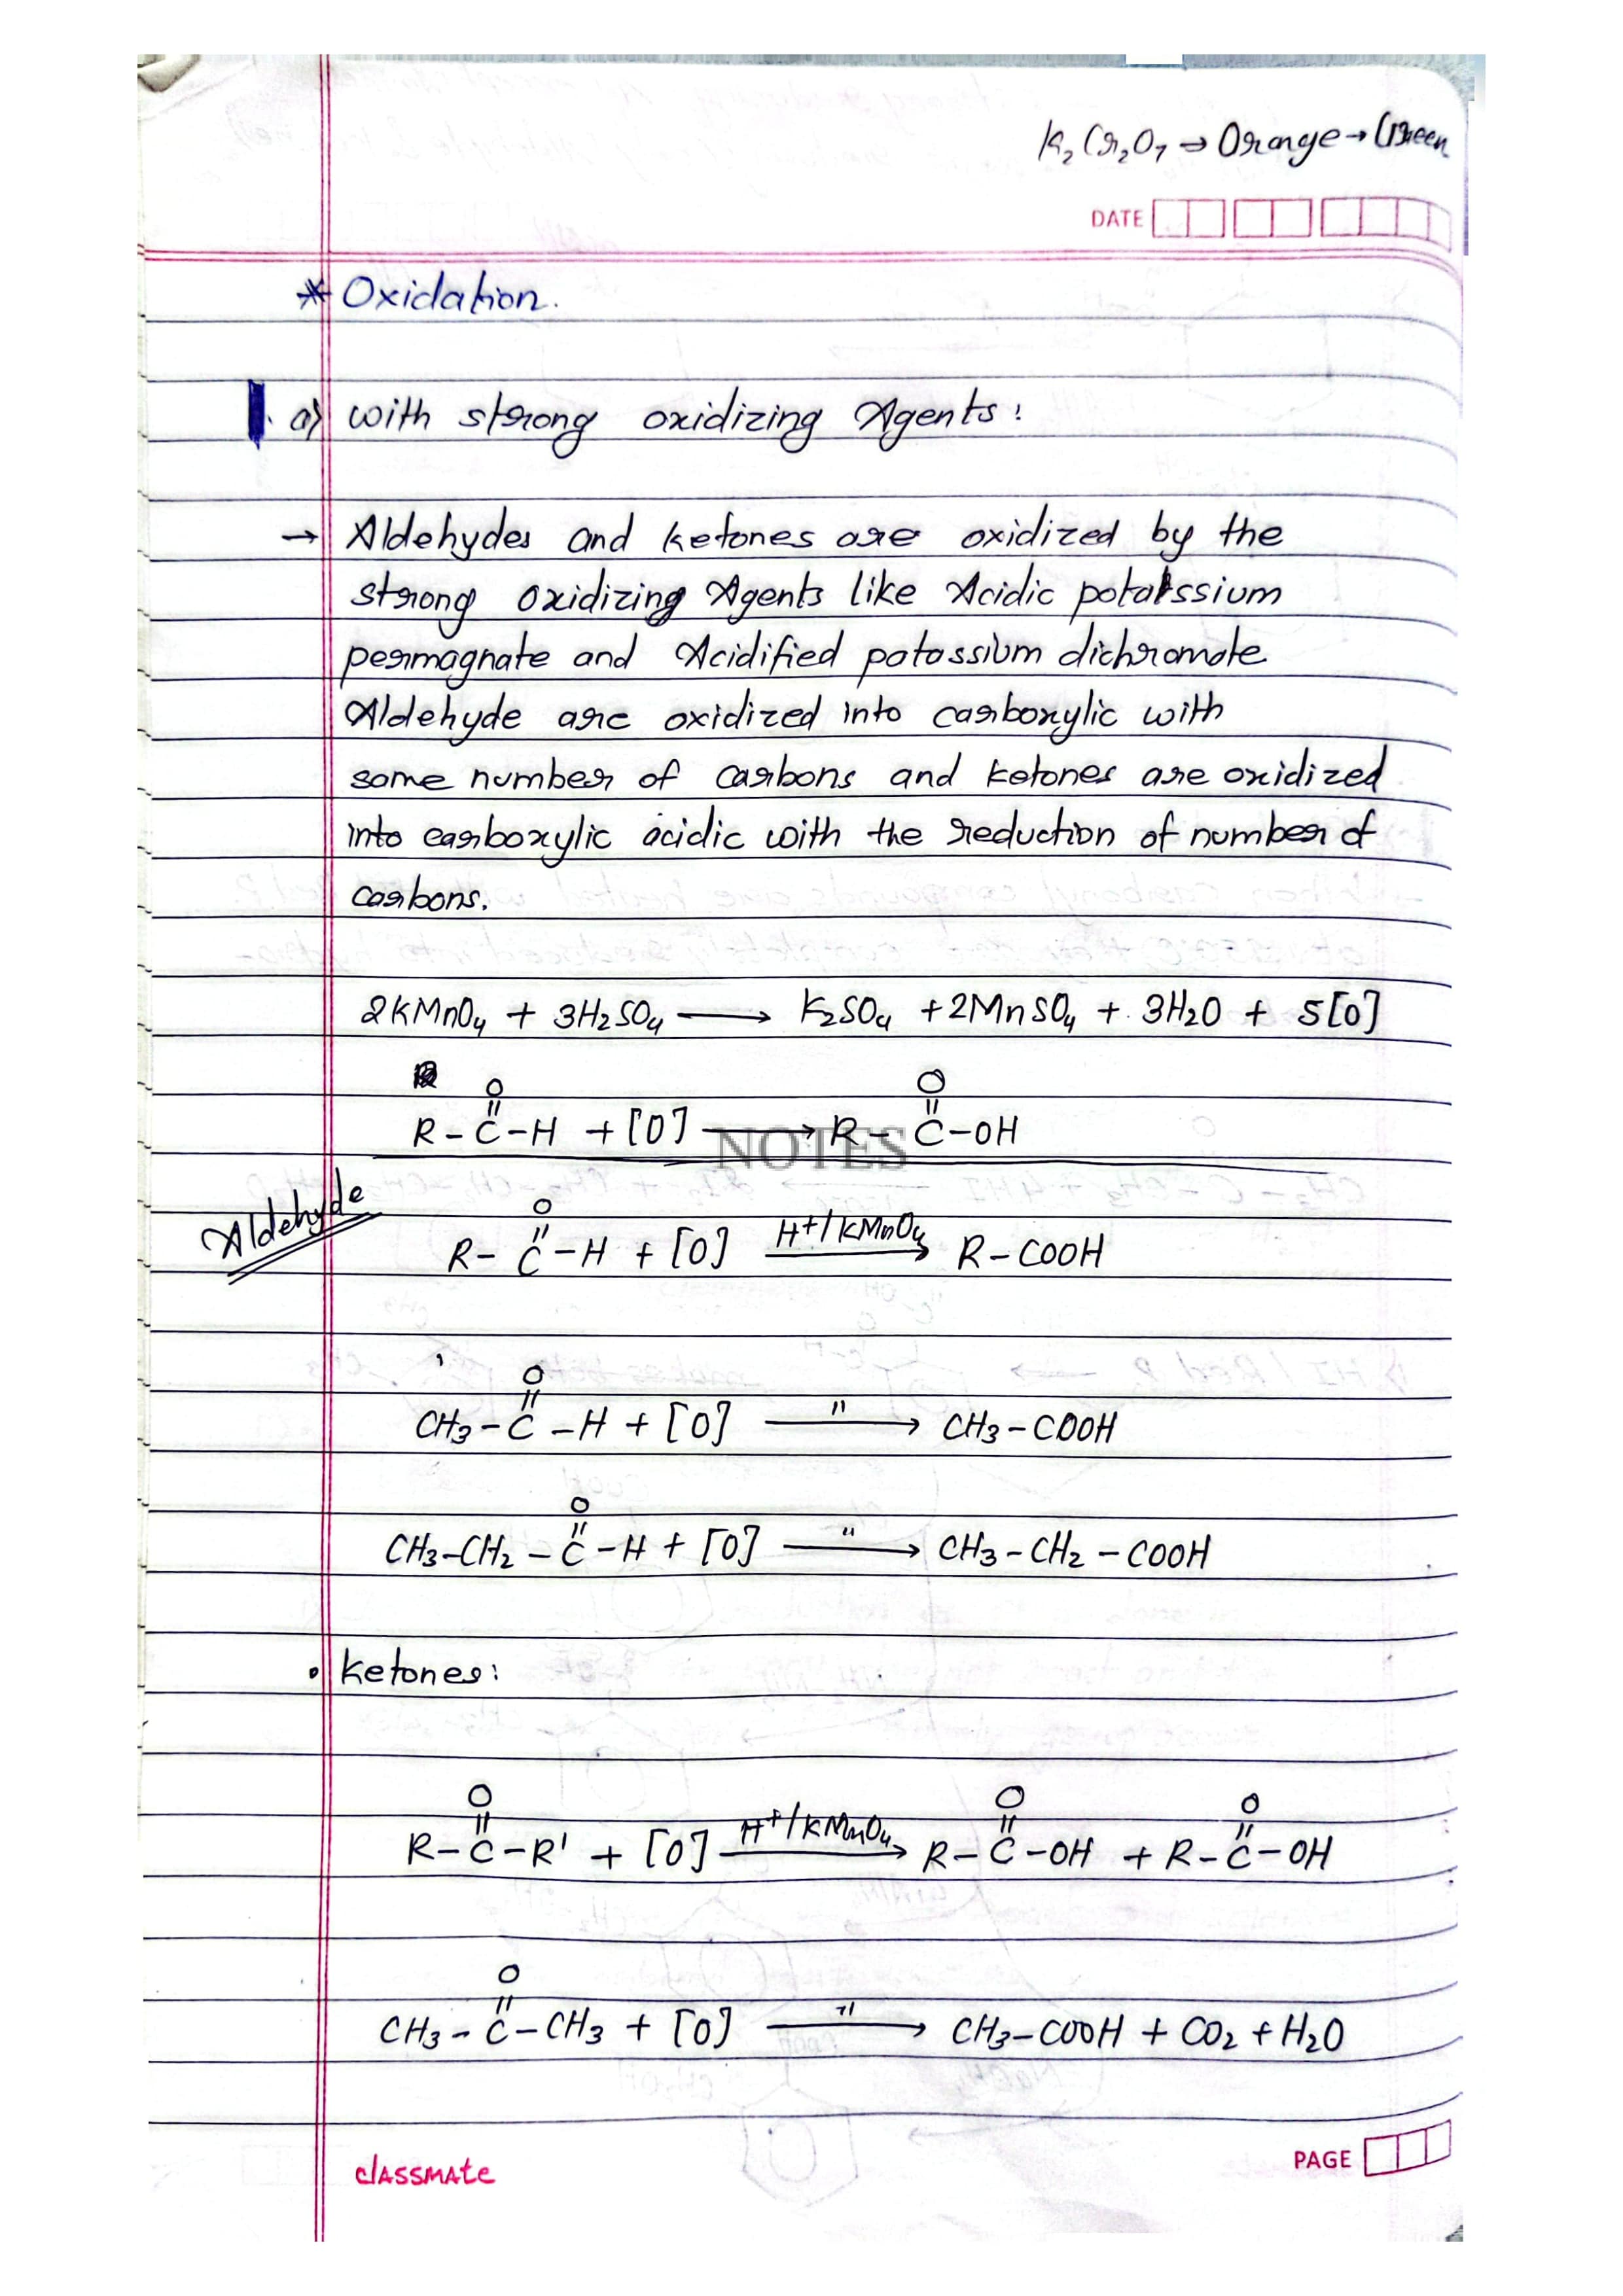 K₂Cr₂O₇ ⇒ Orange → Green
DATE
* Oxidation.
a) with strong oxidizing Agents:
→ Aldehydes and ketones are oxidized by the
strong oxidizing Agents like Acidic potatssium
permagnate and Acidified potassium dichromate
Aldehyde are oxidized into carboxylic with
same number of carbons and ketones are oxidized
into carboxylic acidic with the reduction of number of
carbons.
2KMnO₄ + 3H₂SO₄ ⟶ K₂SO₄ + 2MnSO₄ + 3H₂O + 5[O]
O O
|| ||
R - C - H + [O] ⟶ R - C - OH
NOTES
Aldehyde
O
||
R - C - H + [O] H⁺/KMnO₄ ⟶ R - COOH
O
||
CH₃ - C - H + [O] " ⟶ CH₃ - COOH
O
||
CH₃-CH₂ - C - H + [O] " ⟶ CH₃ - CH₂ - COOH
• ketones:
O O O
|| || ||
R - C - R' + [O] H⁺/KMnO₄ ⟶ R - C - OH + R - C - OH
O
||
CH₃ - C - CH₃ + [O] " ⟶ CH₃-COOH + CO₂ + H₂O
classmate
PAGE